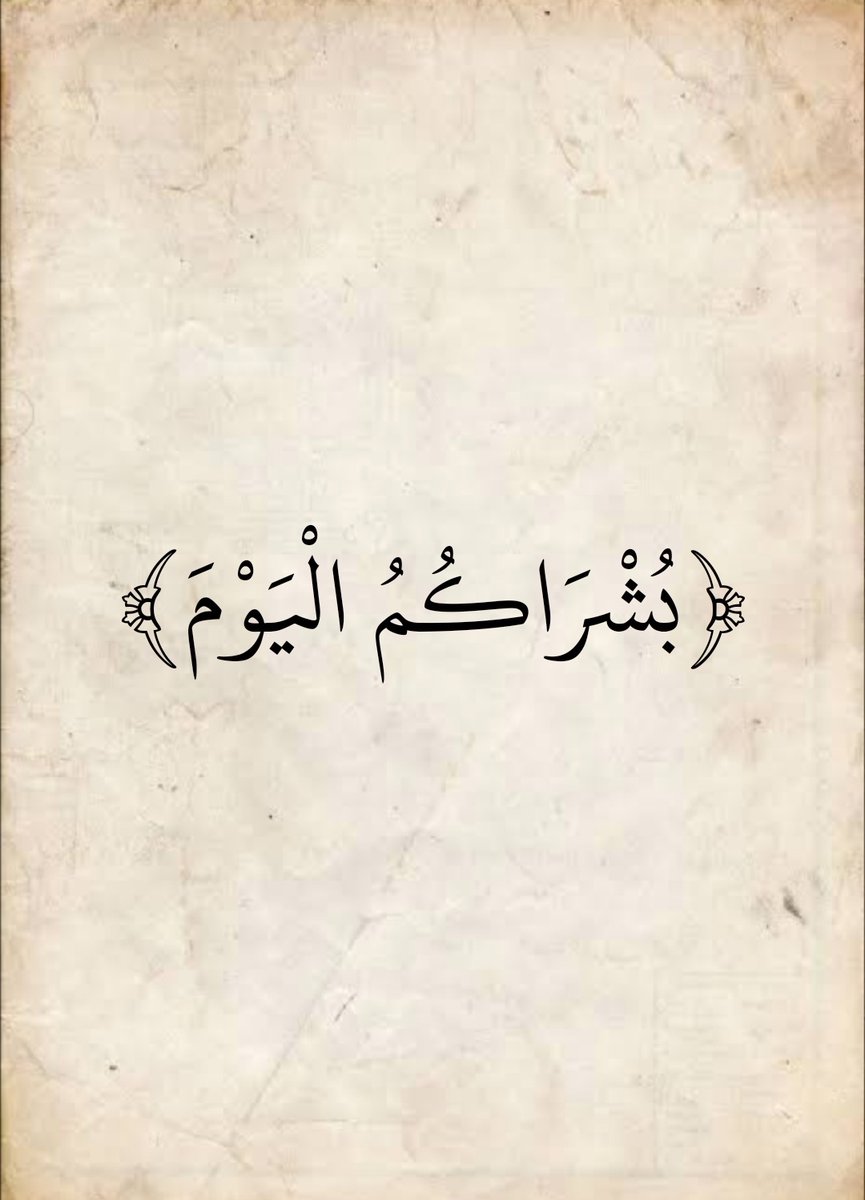 ﴿بُشْرَاكُمُ الْيَوْمَ﴾